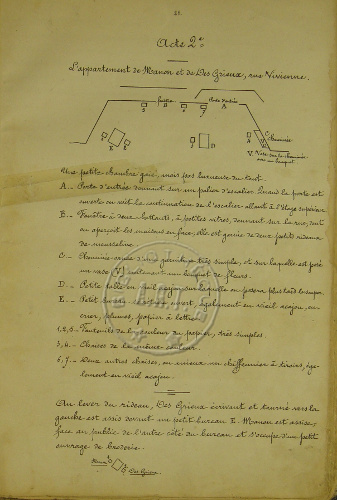 Acte 2e
L'appartement de Manon et de Des Grieux, rue Vivienne.
fenêtre
Porte d'entrée
Cheminée
Une petite chambre gaie, mais pas luxueuse du tout.
A _ Porte d'entrée donnant sur un palier d'escalier. Quand la porte est
ouverte on voit la continuation de l'escalier allant à l'étage supérieur
B _ Fenêtre à deux battants, à petites vitres, donnant sur la rue, dont
on aperçoit les maisons en face; elle est garnie de deux petits rideaux
de mousseline.
C _ Cheminée très simple, et sur laquelle est posé
un vase (V) contenant un bouquet de fleurs.
D _ Petite table en vieil acajou sur laquelle on posera plus tard le souper.
E _ Petit bureau ouvert, également en vieil acajou,
plumes, papier à lettres
1, 2, 5 _ Fauteuils de la couleur du papier, très simples
3, 4 _ Chaises de la même couleur.
6, 7 _ Deux autres chaises, ou mieux un chiffonnier à tiroirs, éga-
lement en vieil acajou.
Au lever du rideau, Des Grieux écrivant et tourné vers la
gauche est assis devant un petit bureau E. Manon est assise,
face au public de l'autre côté du bureau et s'occupe d'un petit
ouvrage de broderie.
Manon
Des Grieux